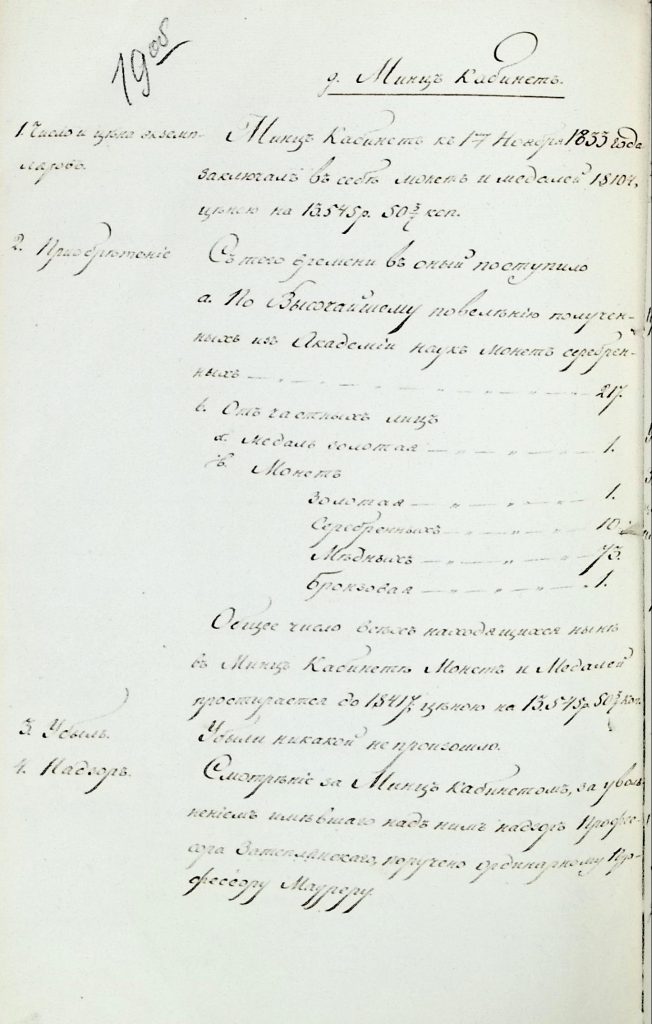 19об
д. Минцъ Кабинетъ.
1. Число и цѣна экземп-
ляровъ.
Минцъ Кабинетъ къ 17 Ноября 1833 года
заключалъ въ себѣ монетъ и медалей 18104,
цѣною на 13.545 р. 50 3/7 коп.
2. Приобрѣтеніе
Съ того времени въ оный поступило
а. По Высочайшему повелѣнію получен-
ныхъ изъ Академіи наукъ монетъ серебрен-
ныхъ — „ — „ — „ — „ — 217.
b. Отъ частныхъ лицъ
α. Медаль золотая — „ — „ — „ — 1.
β. Монетъ
Золотая — „ — „ — „ — 1.
Серебренныхъ — „ — „ — „ — 10.
Мѣдныхъ — „ — „ — „ — 73.
Бронзовая — „ — „ — „ — 1.
Общее число всѣхъ находящихся нынѣ
въ Минцъ Кабинетѣ Монетъ и Медалей
простирается до 18417, цѣною на 13.545 р. 50 3/7 коп.
3. Убыль.
Убыли никакой не произошло.
4. Надзоръ.
Смотрѣніе за Минцъ Кабинетомъ, за уволь-
неніемъ имѣвшаго надъ нимъ надзоръ Профес-
сора Затеплинскаго, поручено ординарному Про-
фессору Мауреру.